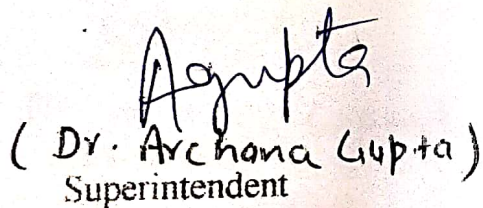 Agupta
( Dr. Archana Gupta )
Superintendent